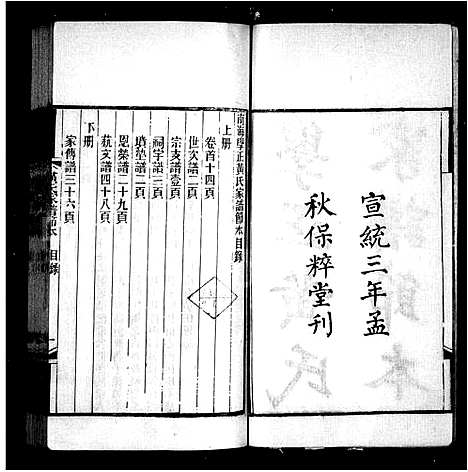 宣統三年孟
秋保粹堂刊
南海學正黃氏家譜節本目錄
上册
卷首十四頁
世次譜二頁
宗支譜壹頁
祠宇譜二頁
墳塋譜二頁
恩榮譜二十九頁
藝文譜四十八頁
下册
家傳譜三十六頁
目錄